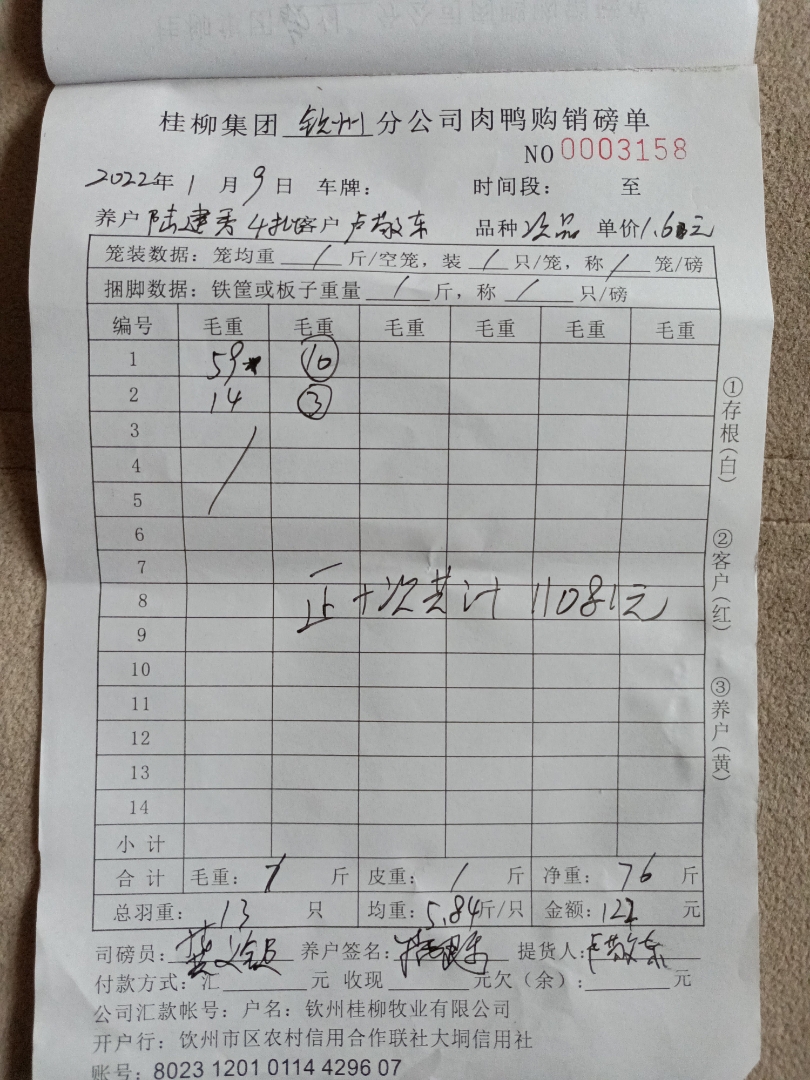 桂柳集团 钦州 分公司肉鸭购销磅单
NO 0003158
2022年 1 月 9 日 车牌： 时间段： 至
养户 陆建秀 4批 客户 卢敬东 品种 次品 单价 1.6元
笼装数据：笼均重 / 斤/空笼，装 / 只/笼，称 / 笼/磅
捆脚数据：铁筐或板子重量 / 斤，称 / 只/磅
编号 毛重 毛重 毛重 毛重 毛重 毛重
1 59 10
2 14 3
3
4
5
6
7
8 正+次共计 11081元
9
10
11
12
13
14
小计
合计 毛重： / 斤 皮重： / 斤 净重：76 斤
总羽重：13 只 均重：5.84斤/只 金额：122 元
司磅员： 养户签名： 提货人：卢敬东
付款方式：汇 元 收现 元欠（余）： 元
公司汇款帐号：户名：钦州桂柳牧业有限公司
开户行：钦州市区农村信用合作联社大垌信用社
账号：8023 1201 0114 4296 07
①存根（白）
②客户（红）
③养户（黄）